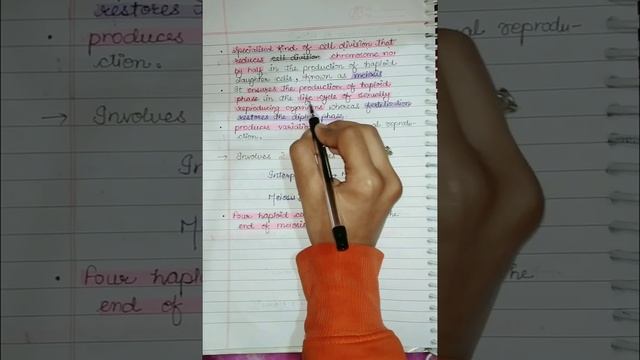 • Specialised kind of cell division that
reduces cell division chromosome no.
by half in the production of haploid
daughter cells, known as meiosis
• It ensures the production of haploid
phase in the life cycle of sexually
reproducing organisms whereas fertilization
restores the diploid phase.
• produces variation al reprodu-
ction.
→ Involves 2
Interp
Meiosis
• Four haploid ce the
end of meiosis